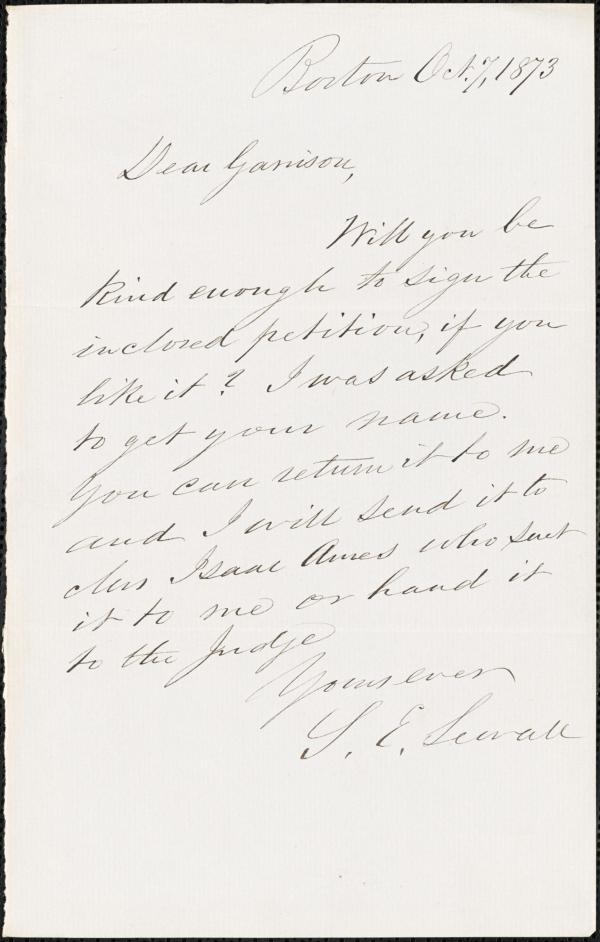 Boston Oct. 7, 1873
Dear Garrison,
Will you be
kind enough to sign the
inclosed petition, if you
like it? I was asked
to get your name.
You can return it to me
and I will send it to
Mrs Isaac Ames who sent
it to me or hand it
to the Judge
Yours ever
S. E. Sewall